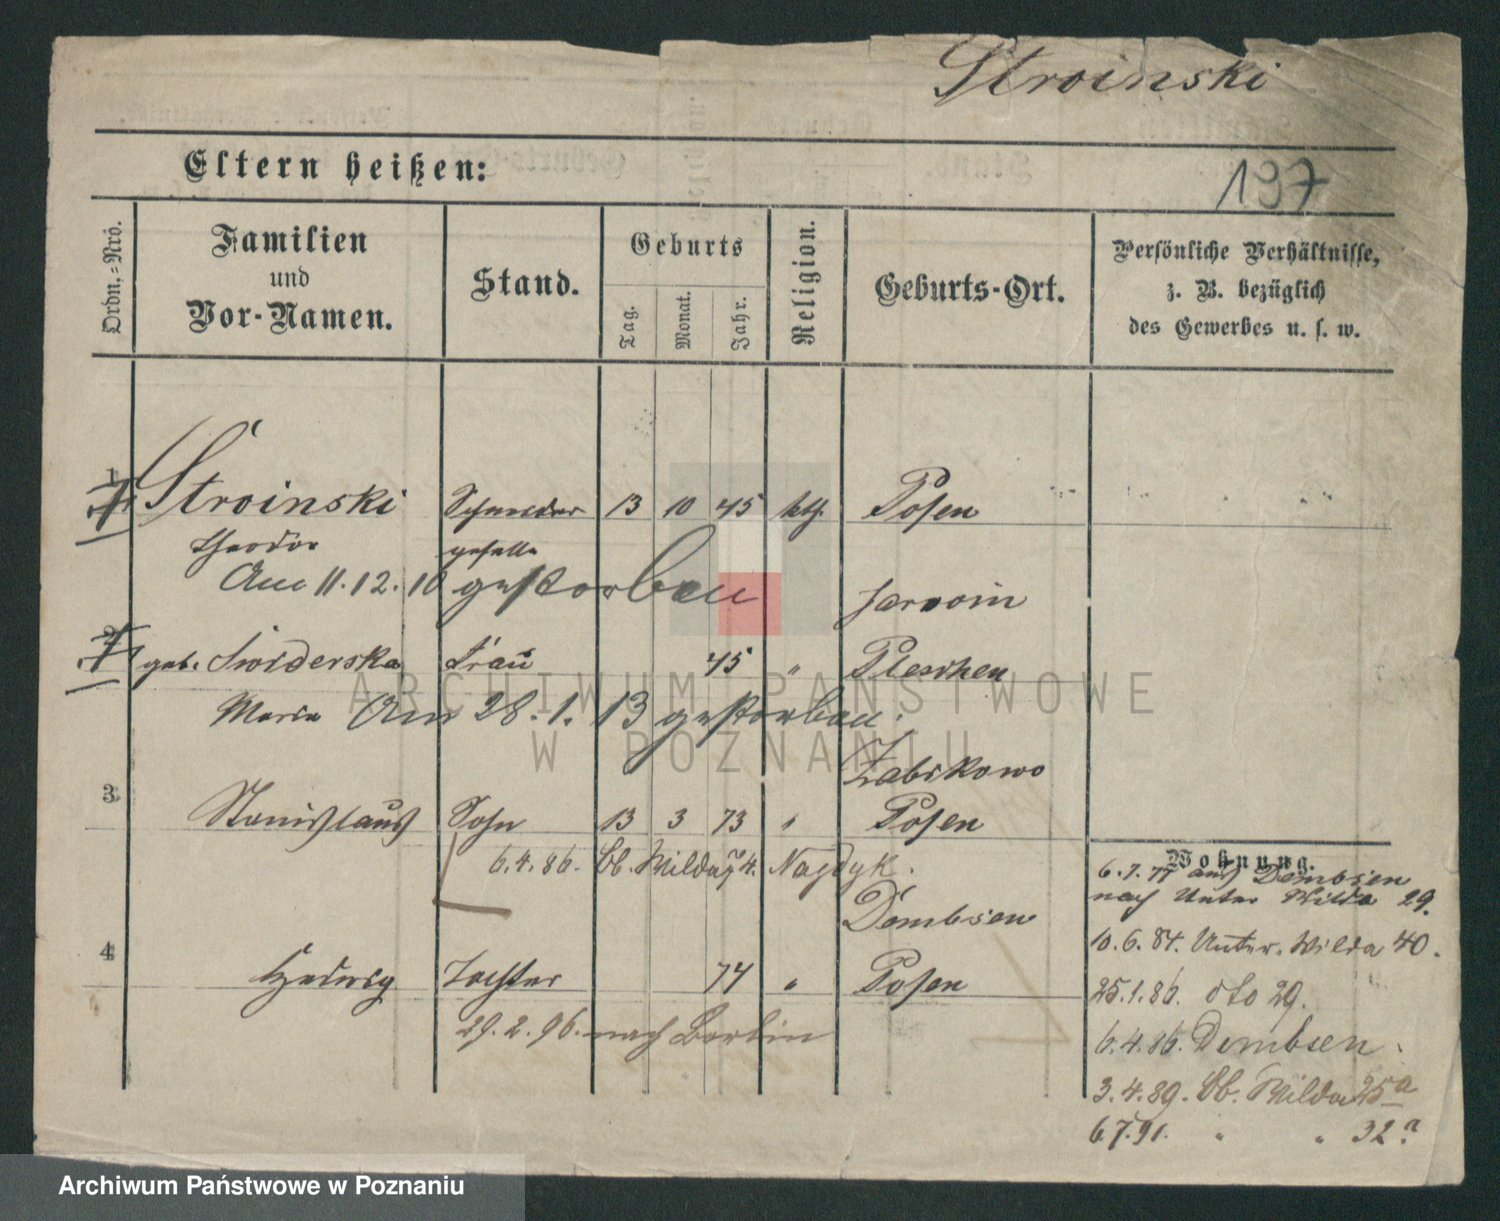 Stroinski
197
Eltern heißen:
Ordn.-Nrö.
Familien
und
Vor-Namen.
Stand.
Geburts
Tag.
Monat.
Jahr.
Religion.
Geburts-Ort.
Persönliche Verhältnisse,
z. B. bezüglich
des Gewerbes u. s. w.
1 Stroinski Schneider 13 10 45 kth. Posen
Theodor geselle
Am 11.12.10 gestorben
Jarocin
2 geb. Swiderska Frau 45 " Pleschen
Maria Am 28.1.13 gestorben.
Zabikowo
3 Stanislaus Sohn 13 3 73 " Posen
6.4.86. Ob. Wilda 74.
Dembsen
4 Hedwig Tochter 74 " Posen
29.2.96. nach Berlin
Wohnung.
6.7.77 aus Dembsen
nach Unter Wilda 29.
10.6.84. Unter. Wilda 40.
25.1.86. dto 29.
6.4.86. Dembsen.
3.4.89. Ob. Wilda 25a
6.7.91. " " 32a
ARCHIWUM PAŃSTWOWE
W POZNANIU
Archiwum Państwowe w Poznaniu